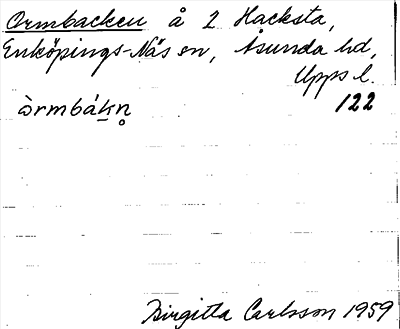 Ormbacken å 2 Hacksta,
Enköpings-Näs sn, Åsunda hd,
Upps l.
òrmbák̲n̥ 122
Birgitta Carlsson 1959